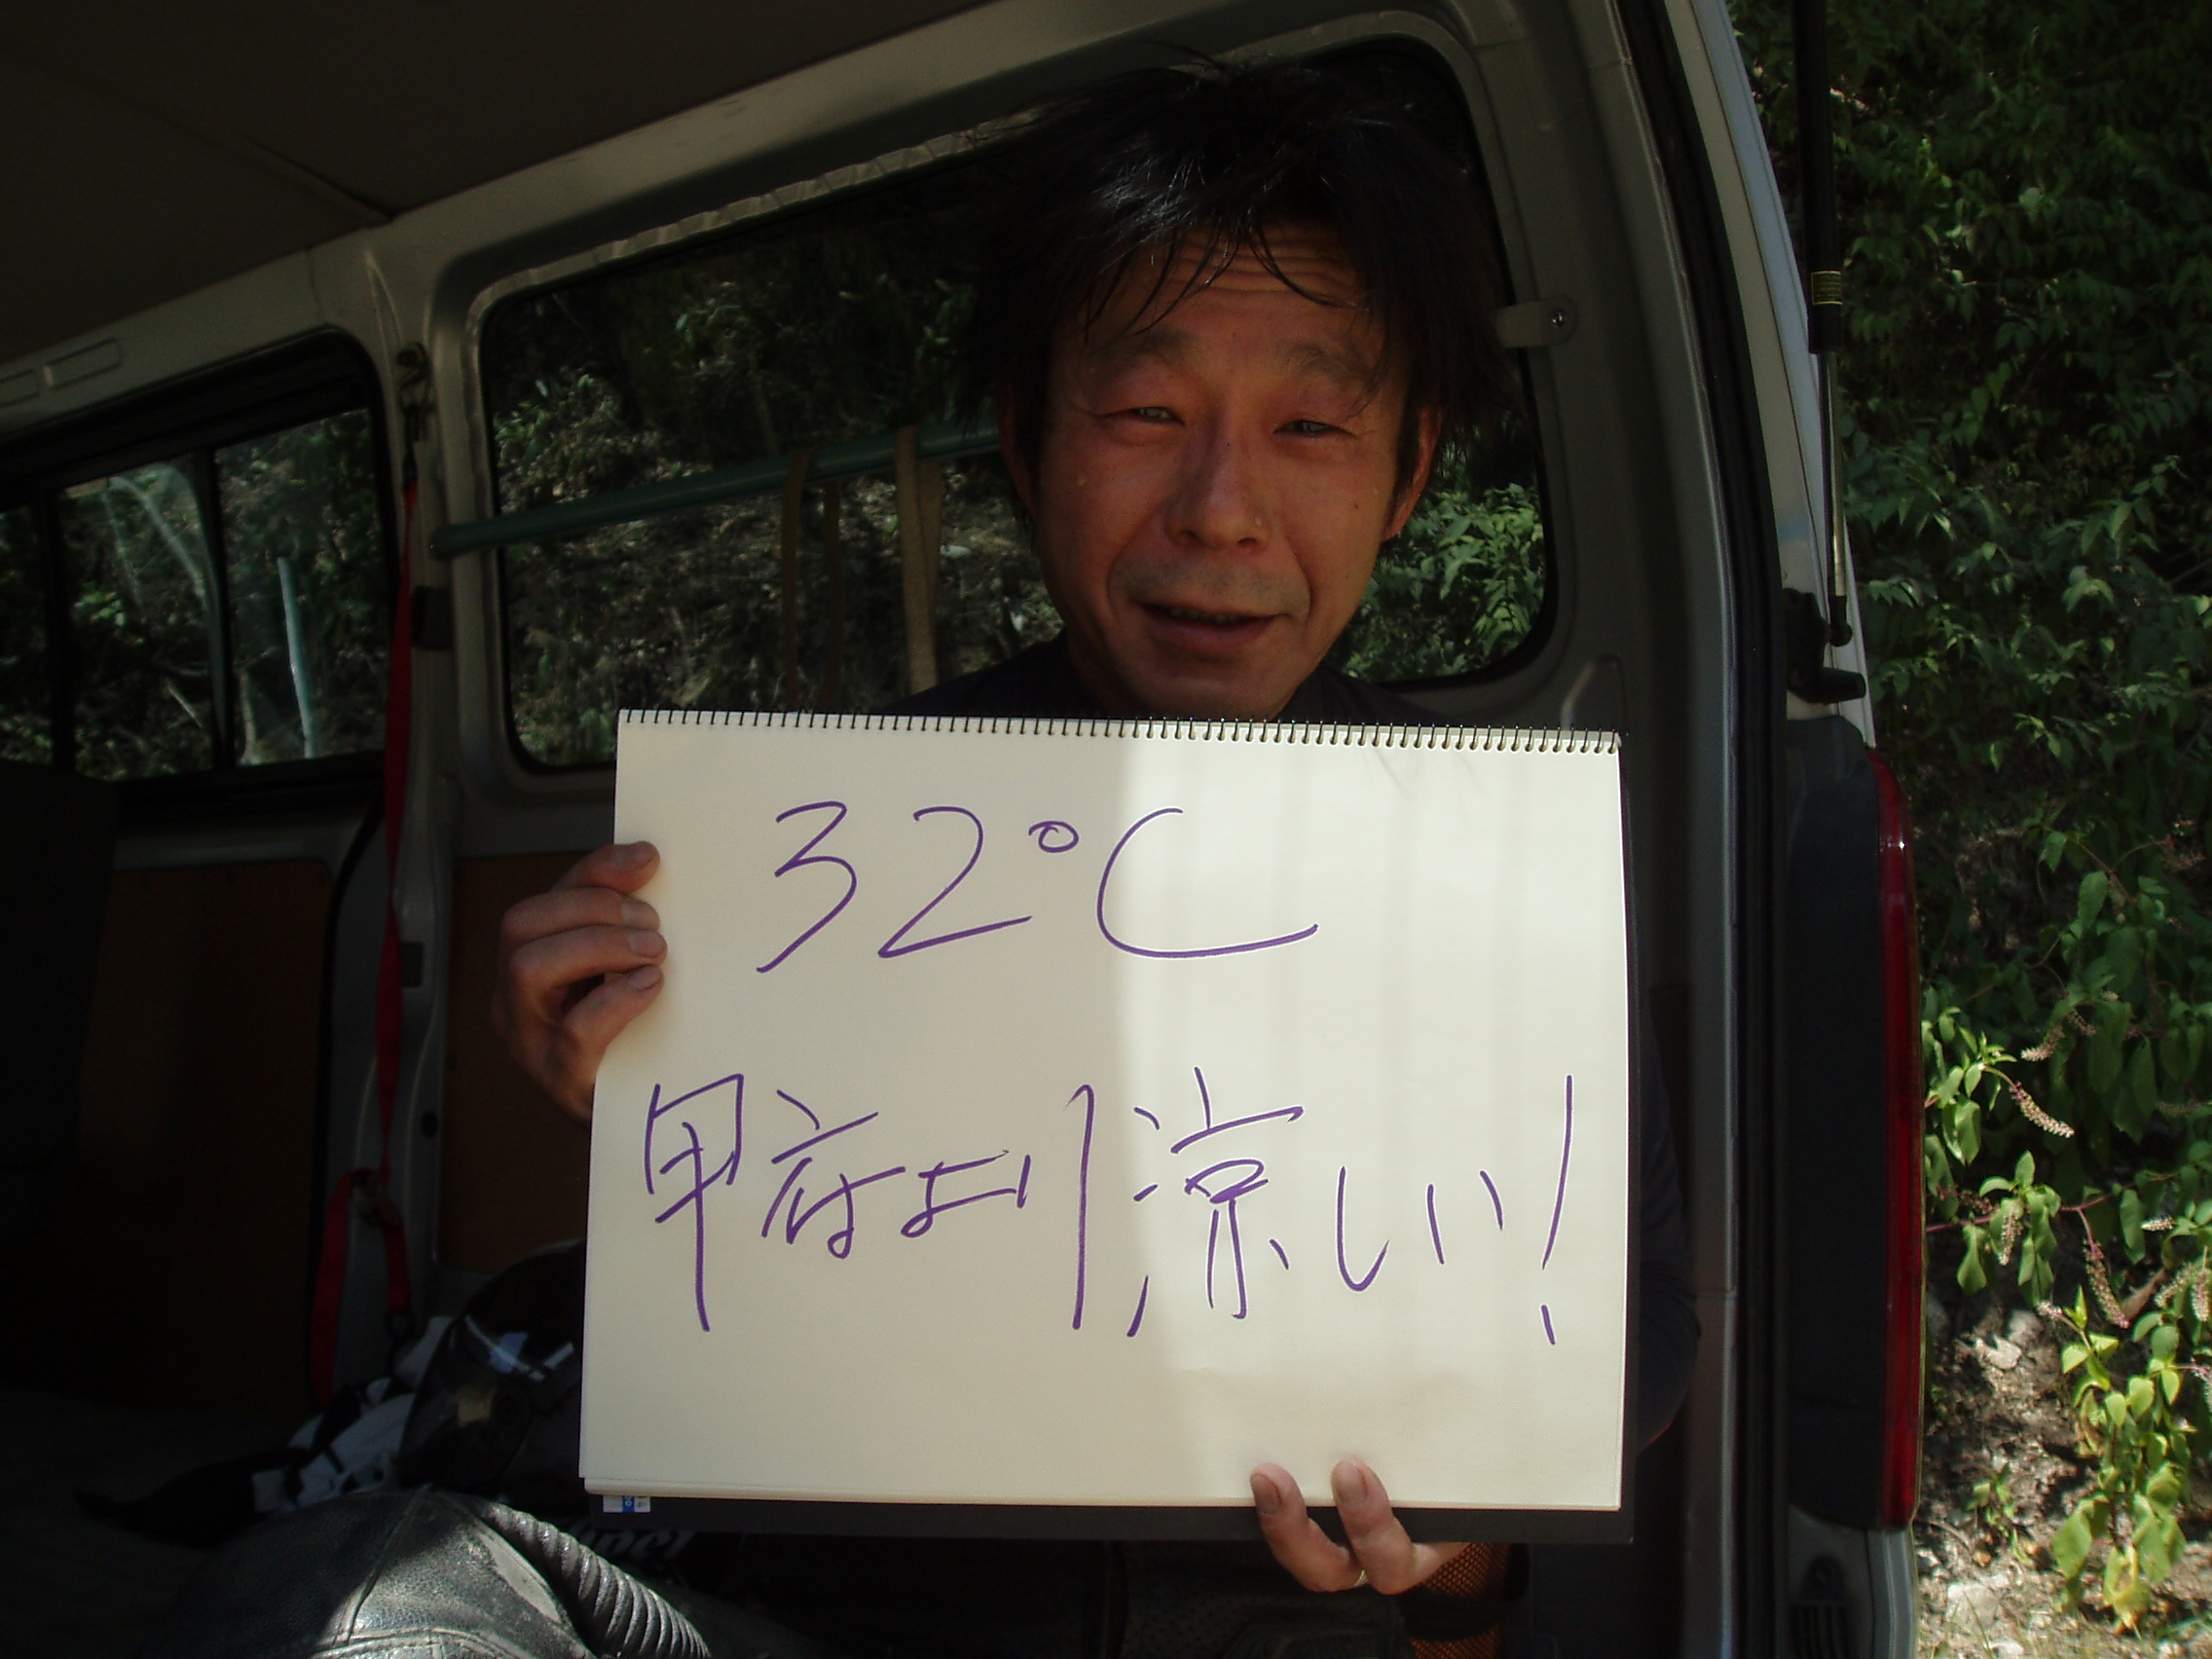 32°C
甲府より涼しい!